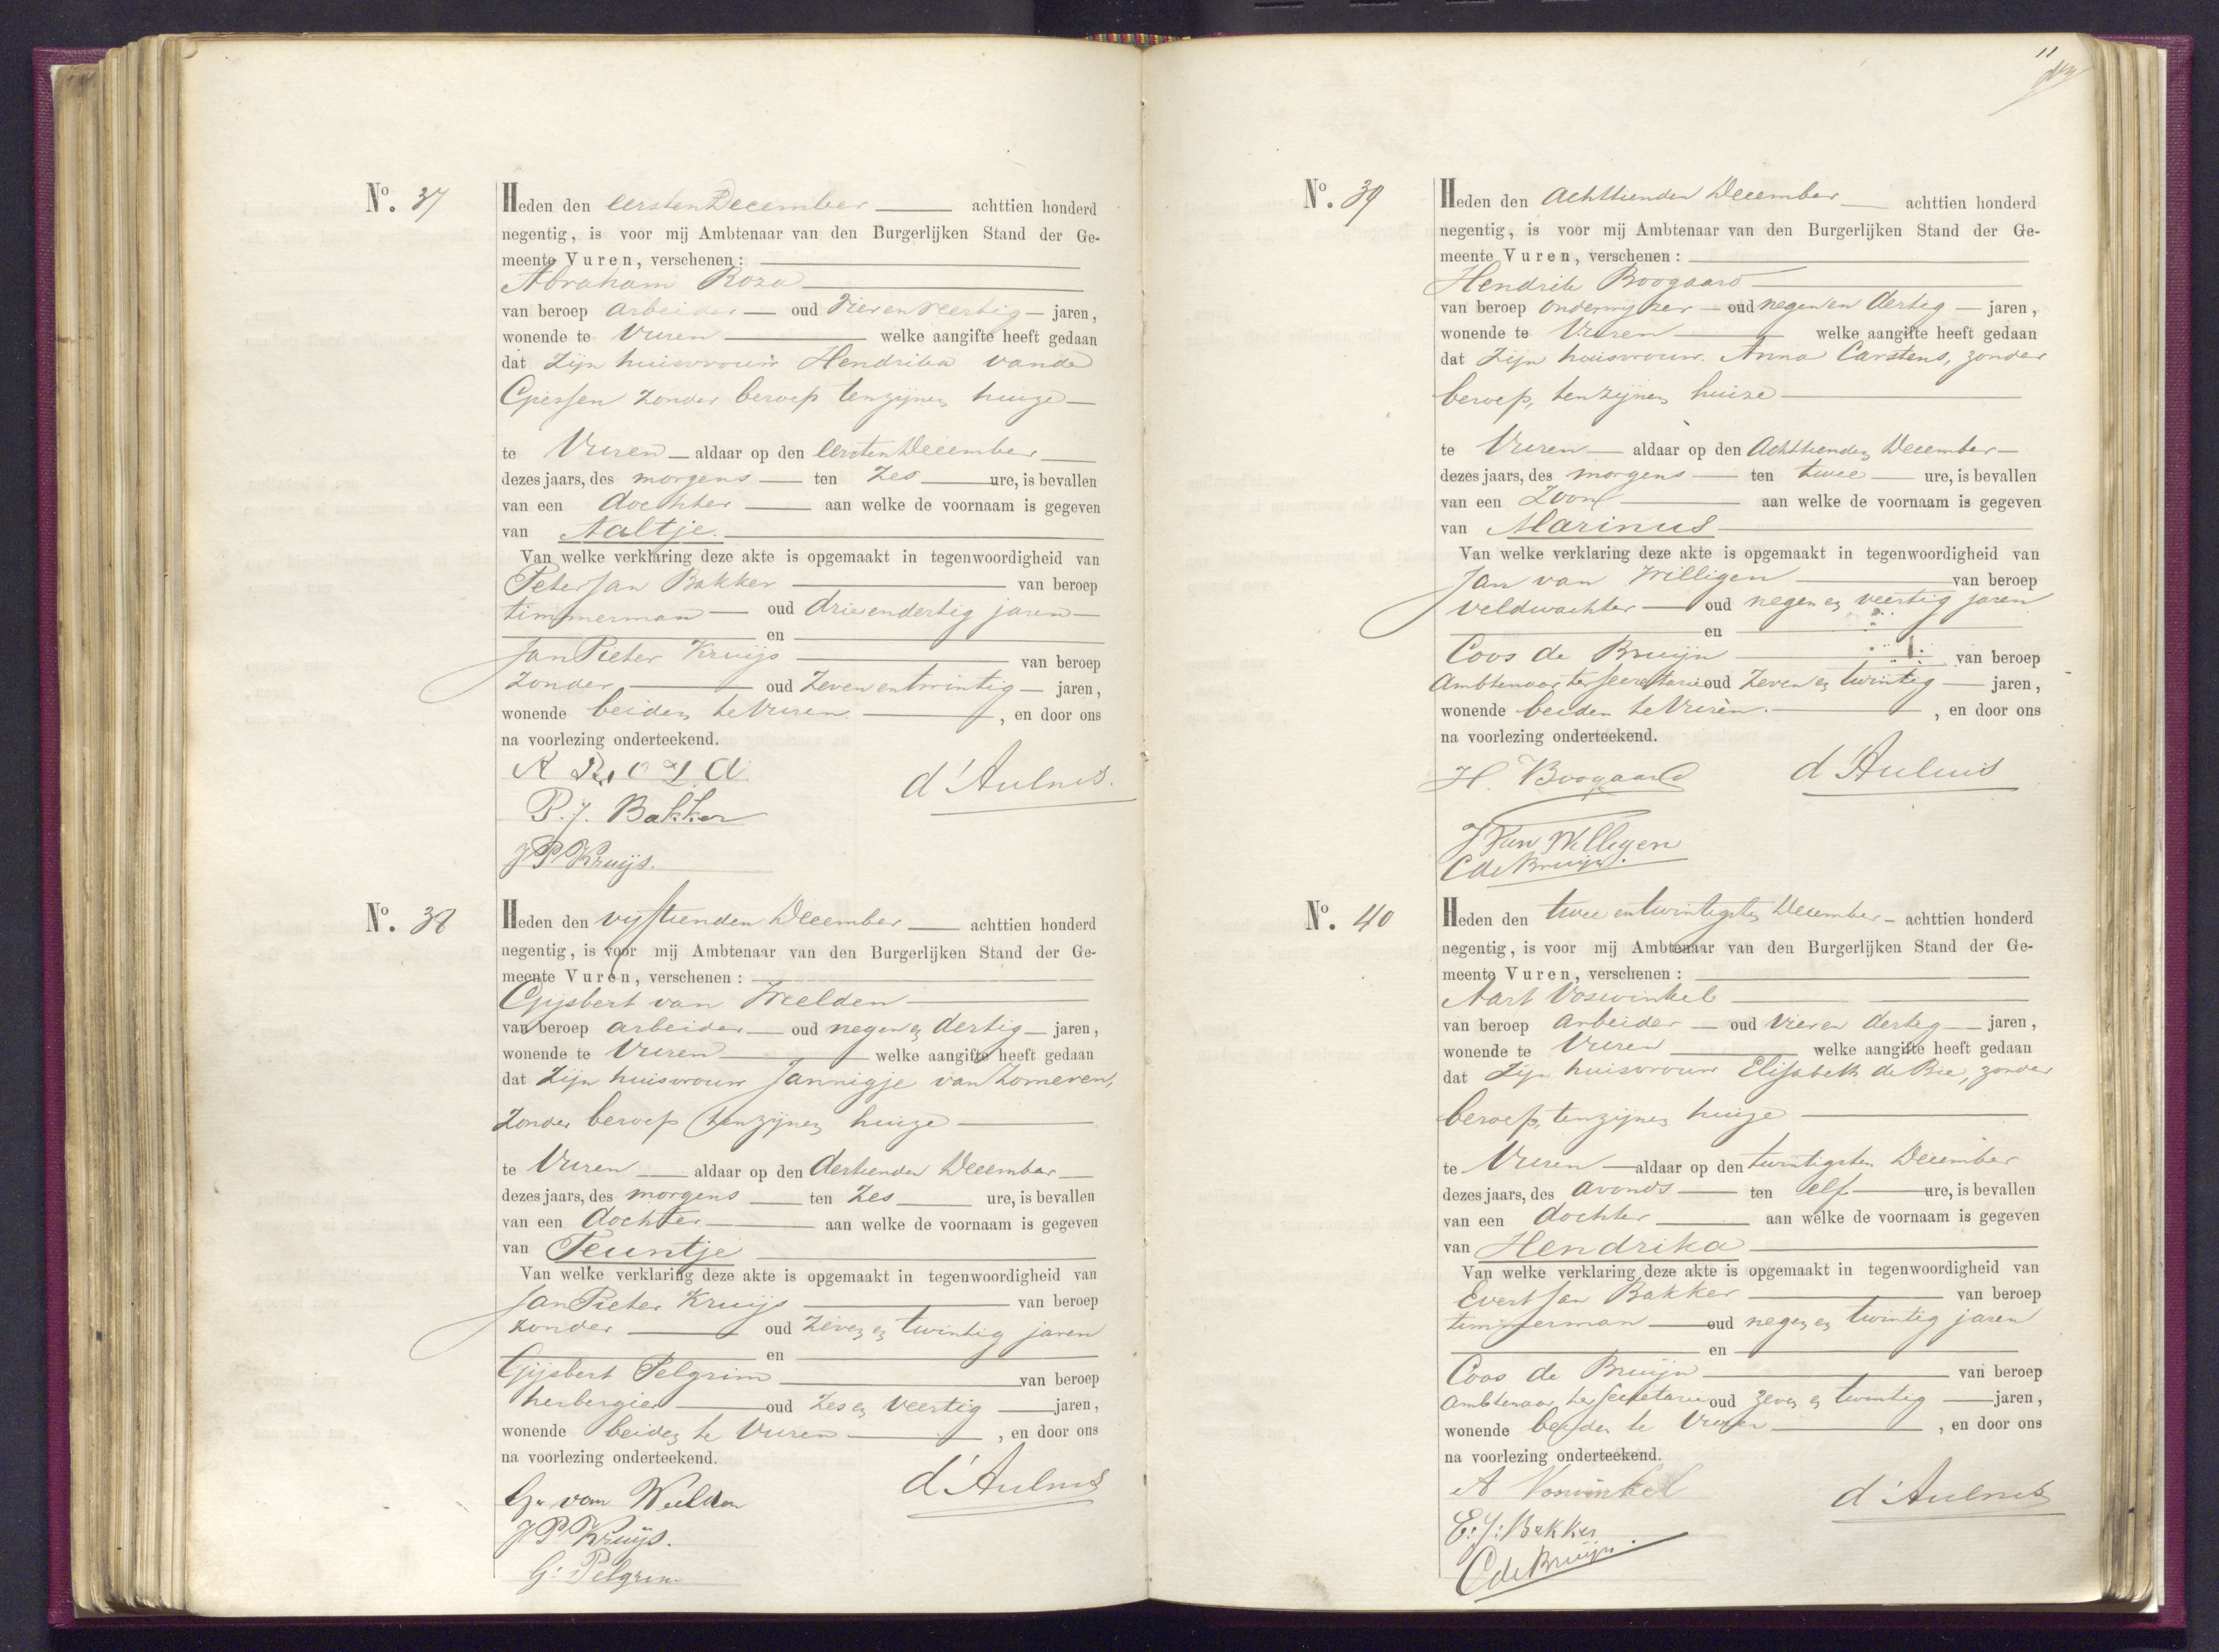 N⁰. 37
Heden den eersten December achttien honderd
negentig, is voor mij Ambtenaar van den Burgerlijken Stand der Ge-
meente Vuren, verschenen:
Abraham Roza
van beroep arbeider oud vierenveertig jaren,
wonende te Vuren welke aangifte heeft gedaan
dat zijn huisvrouw Hendrika van de
Giessen zonder beroep tenzijnen huize
te Vuren aldaar op den eersten December
dezes jaars, des morgens ten zes ure, is bevallen
van een dochter aan welke de voornaam is gegeven
van Aaltje.
Van welke verklaring deze akte is opgemaakt in tegenwoordigheid van
Peter Jan Bakker van beroep
timmerman oud drieendertig jaren
en
Jan Pieter Kruijs van beroep
zonder oud zevenentwintig jaren,
wonende beiden te Vuren, en door ons
na voorlezing onderteekend.
A Roza
d'Aulnis.
P.J. Bakker
JP Kruijs.
N⁰. 38
Heden den vijftienden December achttien honderd
negentig, is voor mij Ambtenaar van den Burgerlijken Stand der Ge-
meente Vuren, verschenen:
Gijsbert van Weelden
van beroep arbeider oud negen en dertig jaren,
wonende te Vuren welke aangifte heeft gedaan
dat zijn huisvrouw Jannigje van Zomeren,
zonder beroep tenzijnen huize
te Vuren aldaar op den dertienden December
dezes jaars, des morgens ten zes ure, is bevallen
van een dochter aan welke de voornaam is gegeven
van Teuntje
Van welke verklaring deze akte is opgemaakt in tegenwoordigheid van
Jan Pieter Kruijs van beroep
zonder oud zeven en twintig jaren
en
Gijsbert Pelgrim van beroep
herbergier oud zes en veertig jaren,
wonende beiden te Vuren, en door ons
na voorlezing onderteekend.
G. van Weelden
d'Aulnis
JP Kruijs.
G. Pelgrim
11
N⁰. 39
Heden den achttienden December achttien honderd
negentig, is voor mij Ambtenaar van den Burgerlijken Stand der Ge-
meente Vuren, verschenen:
Hendrik Boogaard
van beroep onderwijzer oud negen en dertig jaren,
wonende te Vuren welke aangifte heeft gedaan
dat zijn huisvrouw Anna Carstens, zonder
beroep, tenzijnen huize
te Vuren aldaar op den achttienden December
dezes jaars, des morgens ten twee ure, is bevallen
van een zoon aan welke de voornaam is gegeven
van Marinus
Van welke verklaring deze akte is opgemaakt in tegenwoordigheid van
Jan van Willigen van beroep
veldwachter oud negen en veertig jaren
en
Coos de Bruijn van beroep
ambtenaar ter secretarie oud zeven en twintig jaren,
wonende beiden te Vuren., en door ons
na voorlezing onderteekend.
H. Boogaard
d'Aulnis
J Van Willigen
C de Bruijn.
N⁰. 40
Heden den twee entwintigsten December achttien honderd
negentig, is voor mij Ambtenaar van den Burgerlijken Stand der Ge-
meente Vuren, verschenen:
Aart Voswinkel
van beroep arbeider oud vier en dertig jaren,
wonende te Vuren welke aangifte heeft gedaan
dat zijn huisvrouw Elisabeth de Bie, zonder
beroep, tenzijnen huize
te Vuren aldaar op den twintigsten December
dezes jaars, des avonds ten elf ure, is bevallen
van een dochter aan welke de voornaam is gegeven
van Hendrika
Van welke verklaring deze akte is opgemaakt in tegenwoordigheid van
Evert Jan Bakker van beroep
timmerman oud negen en twintig jaren
en
Coos de Bruijn van beroep
ambtenaar ter secretarie oud zeven en twintig jaren,
wonende beiden te Vuren, en door ons
na voorlezing onderteekend.
A Voswinkel
d'Aulnis
E: J: Bakker
C de Bruijn.